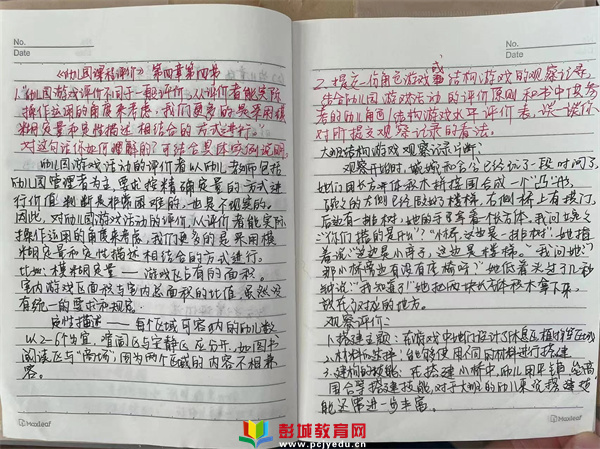 No.
Date
《幼儿园课程评价》第四章第四节
1."幼儿园游戏评价不同于一般评价,从评价者能实际
操作运用的角度来考虑,我们更多的是采用模
糊质量和定性描述相结合的方式进行。
对这句话你如何理解的?可结合具体实例说明。
幼儿园游戏活动的评价者以幼儿老师包括
幼儿园管理者为主,要求按精确质量的方式进
行价值判断是非常困难的,也是不现实的。
因此,对幼儿园游戏活动的评价,从评价者能实际
操作运用的角度来考虑,我们更多的是采用模
糊质量和定性描述相结合的方式进行。
比如:模糊质量——游戏区占有的面积。
室内游戏区面积与室内总面积的比值,虽然没
有统一的要求和规定。
定性描述——每个区域可容纳的幼儿数
以2-6个为宜,喧闹区与安静区应分开,如图书
阅读区与"商场",因为两个区域的内容不相兼
容。
Maxleaf
No.
Date
2.提交一份角色游戏或结构游戏的观察记录,
结合幼儿园游戏活动的评价原则和书中参考
的幼儿角色/结构游戏水平评价表,谈一谈你
对所提交观察记录的看法。
大班结构游戏观察记录片断:
观察开始时,
她们用长方体积木拼接围合成一个"凸"形,
后边有一排树,她的手里拿着个长方体。我问
"你们搭的是什么?""桥,这边是一排树",她指
着说"这边是小亭子,这边是楼梯。"我问她:"
那小桥旁边有没有座椅呀?"她低着头过了几秒
钟说:"我知道了!"她把两块长方体积木拿下来,
放在了对应的地方。
观察评价:
1.搭建主题:在游戏中她们设计了休息区、植树等区域
2.材料的选择:能够使用不同的材料进行搭建
3.建构的技能:在搭建小桥中,幼儿用平铺、垒高、
围合等搭建技能,对于大班的幼儿来说,搭建技
能还需进一步丰富。
Maxleaf
彭城教育网
www.pcjyedu.cn